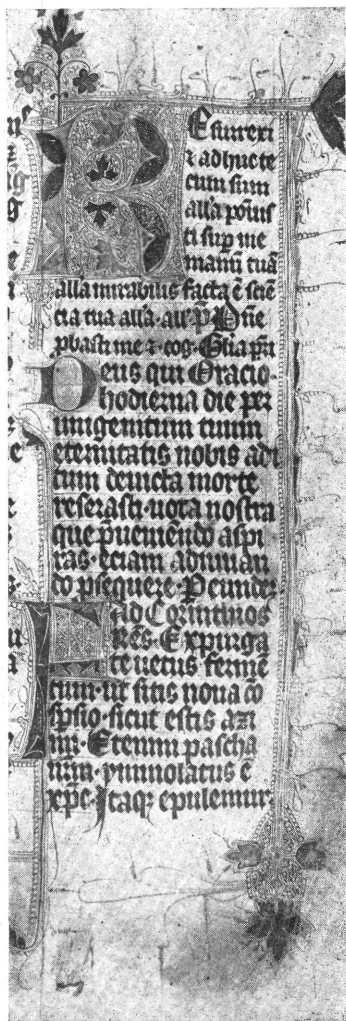 Esurrexi
⁊ adhuc te
cum sum
alla posuis
ti sup me
manū tuā
alla mirabilis facta ē sciē
cia tua alla · all' p̄ Dñe
ꝓbasti me ⁊ · cog · Glia pr̄i
Deus qui Oracio ·
hodierna die per
unigenitum tuum
eternitatis nobis adi
tum deuicta morte
reserasti · uota nostra
que p̄ueniendo aspi
ras · eciam adiuuan
do ꝓsequere · P eundē ·
ad Corintios
Rēs · Expurga
te uetus fermē
tum · ut sitis noua cō
spsio · sicut estis azi
mi · Etenim pascha
nrm · ymmolatus ē
xp̄c · Itaq; epulemur ·